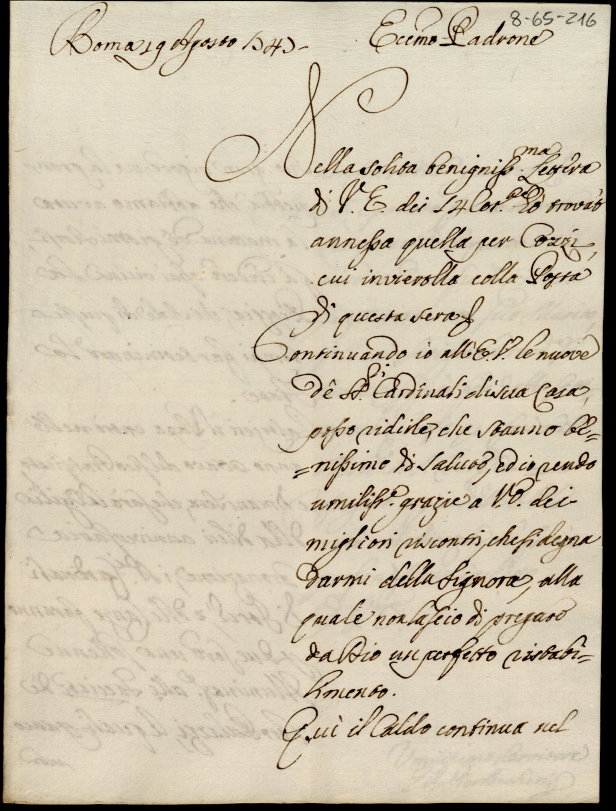 8-65-216
Roma 19 Agosto 1747 Eccmo Padrone
Nella solita benigniss.ma Lettera
di V. E. dei 14 Cor.te ho trovato
annessa quella per Cozzi,
cui invierolla colla Posta
di questa sera
Continuando io all' E. V. le nuove
de Sri. Cardinali di sua Casa,
posso ridirle, che stanno be=
=nissimo di salute, ed io rendo
umiliss.e grazie a V. E. dei
migliori riscontri, che si degna
darmi della Signora, alla
quale non lascio di pregare
da Dio un perfetto ristabi=
limento.
Qui il Caldo continua nel